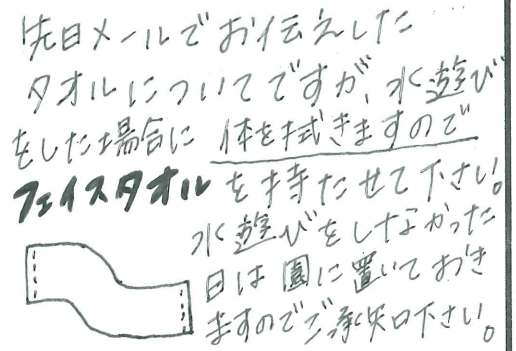 先日メールでお伝えした
タオルについてですが、水遊び
をした場合に体を拭きますので
フェイスタオルを持たせて下さい。
水遊びをしなかった
日は園に置いておき
ますのでご承知下さい。